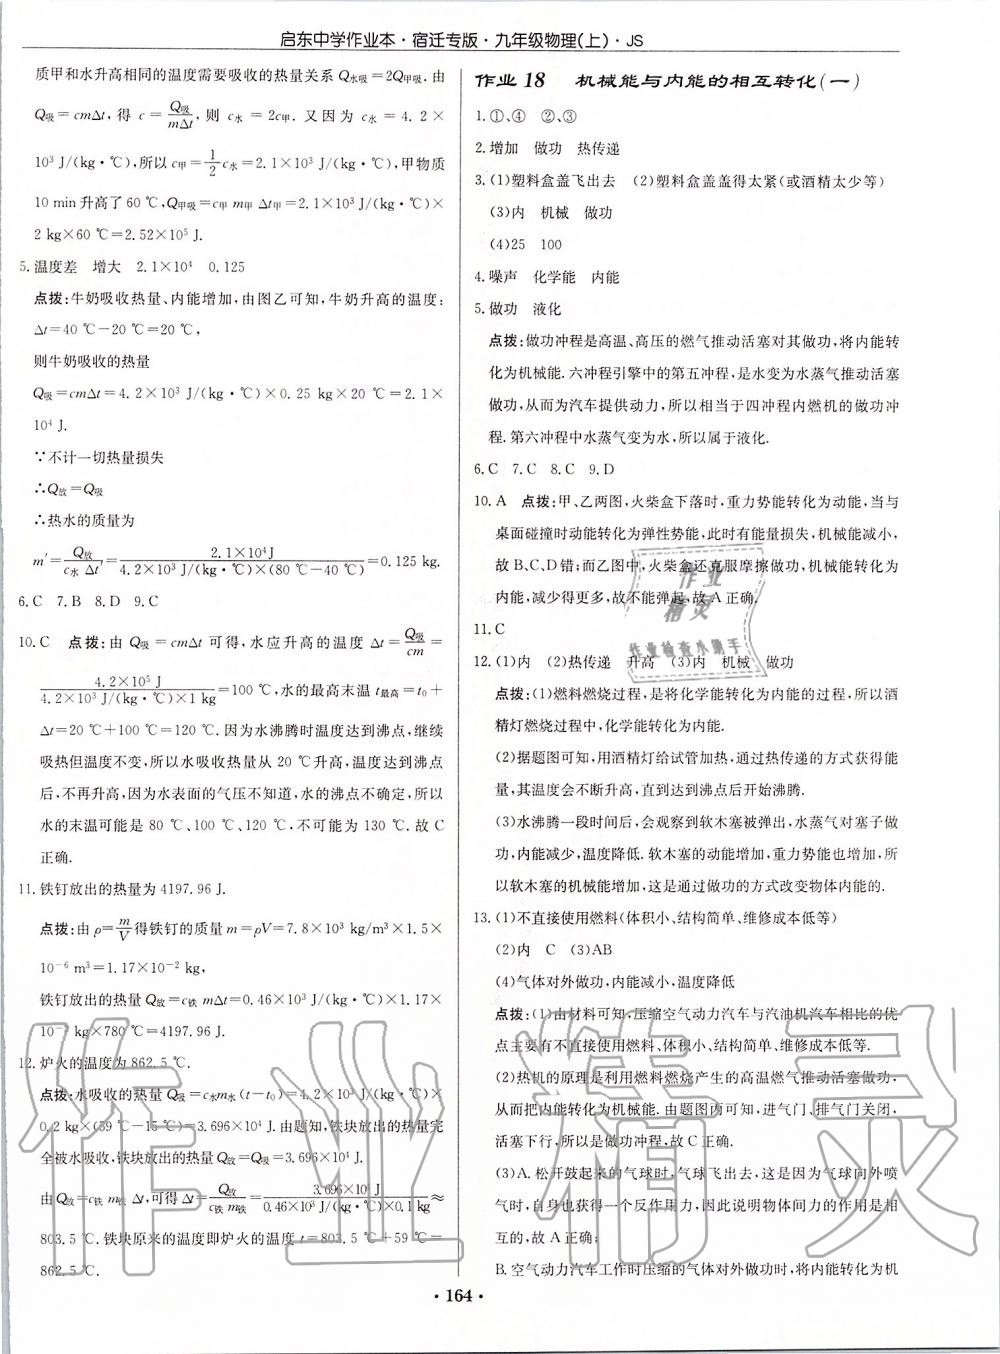 启东中学作业本·宿迁专版·九年级物理(上)·JS
质甲和水升高相同的温度需要吸收的热量关系 Q水吸=2Q甲吸. 由
Q吸=cmΔt, 得 c=Q吸/mΔt, 则 c水=2c甲. 又因为 c水=4.2×
10³ J/(kg·℃),所以 c甲=1/2 c水=2.1×10³ J/(kg·℃),甲物质
10 min升高了60 ℃,Q甲吸=c甲 m甲 Δt甲=2.1×10³ J/(kg·℃)×
2 kg×60 ℃=2.52×10⁵ J.
5.温度差 增大 2.1×10⁴ 0.125
点拨:牛奶吸收热量、内能增加,由图乙可知,牛奶升高的温度:
Δt=40 ℃-20 ℃=20 ℃,
则牛奶吸收的热量
Q吸=cmΔt=4.2×10³ J/(kg·℃)×0.25 kg×20 ℃=2.1×
10⁴ J.
∵不计一切热量损失
∴Q放=Q吸
∴热水的质量为
m′=Q放/(c水 Δt′)=2.1×10⁴J/(4.2×10³ J/(kg·℃)×(80 ℃-40 ℃))=0.125 kg.
6.C 7.B 8.D 9.C
10.C 点拨:由 Q吸=cmΔt 可得,水应升高的温度 Δt=Q吸/cm=
4.2×10⁵ J/(4.2×10³ J/(kg·℃)×1 kg)=100 ℃,水的最高末温 t最高=t₀+
Δt=20 ℃+100 ℃=120 ℃. 因为水沸腾时温度达到沸点,继续
吸热但温度不变,所以水吸收热量从 20 ℃升高,温度达到沸点
后,不再升高,因为水表面的气压不知道,水的沸点不确定,所以
水的末温可能是 80 ℃、100 ℃、120 ℃,不可能为 130 ℃. 故 C
正确.
11.铁钉放出的热量为 4197.96 J.
点拨:由 ρ=m/V得铁钉的质量 m=ρV=7.8×10³ kg/m³×1.5×
10⁻⁶ m³=1.17×10⁻² kg,
铁钉放出的热量 Q放=c铁 mΔt=0.46×10³ J/(kg·℃)×1.17×
10⁻² kg×780 ℃=4197.96 J.
12.炉火的温度为 862.5 ℃.
点拨:水吸收的热量 Q吸=c水m水(t-t₀)=4.2×10³ J/(kg·℃)×
0.2 kg×(59 ℃-15 ℃)=3.696×10⁴ J.由题知,铁块放出的热量完
全被水吸收,铁块放出的热量 Q放=Q吸=3.696×10⁴ J.
由 Q放=c铁 m铁 Δt,可得 Δt=Q放/(c铁 m铁)=3.696×10⁴ J/(0.46×10³ J/(kg·℃)×0.1 kg)≈
803.5 ℃. 铁块原来的温度即炉火的温度 t=803.5 ℃+59 ℃=
862.5 ℃.
作业18 机械能与内能的相互转化(一)
1.①、④ ②、③
2.增加 做功 热传递
3.(1)塑料盒盖飞出去 (2)塑料盒盖盖得太紧(或酒精太少等)
(3)内 机械 做功
(4)25 100
4.噪声 化学能 内能
5.做功 液化
点拨:做功冲程是高温、高压的燃气推动活塞对其做功,将内能转
化为机械能.六冲程引擎中的第五冲程,是水变为水蒸气推动活塞
做功,从而为汽车提供动力,所以相当于四冲程内燃机的做功冲
程.第六冲程中水蒸气变为水,所以属于液化.
6.C 7.C 8.C 9.D
10.A 点拨:甲、乙两图,火柴盒下落时,重力势能转化为动能,当与
桌面碰撞时动能转化为弹性势能,此时有能量损失,机械能减小,
故 B、C、D 错;而乙图中,火柴盒还克服摩擦做功,机械能转化为
内能,减少得更多,故不能弹起,故 A 正确.
11.C
12.(1)内 (2)热传递 升高 (3)内 机械 做功
点拨:(1)燃料燃烧过程,是将化学能转化为内能的过程,所以酒
精灯燃烧过程中,化学能转化为内能.
(2)据题图可知,用酒精灯给试管加热,通过热传递的方式获得能
量,其温度会不断升高,直到达到沸点后开始沸腾.
(3)水沸腾一段时间后,会观察到软木塞被弹出,水蒸气对塞子做
功,内能减少,温度降低. 软木塞的动能增加,重力势能也增加,所
以软木塞的机械能增加,这是通过做功的方式改变物体内能的.
13.(1)不直接使用燃料(体积小、结构简单、维修成本低等)
(2)内 C (3)AB
(4)气体对外做功,内能减小,温度降低
点拨:(1)由材料可知,压缩空气动力汽车与汽油机汽车相比的优
点主要有不直接使用燃料、体积小、结构简单、维修成本低等.
(2)热机的原理是利用燃料燃烧产生的高温燃气推动活塞做功,
从而把内能转化为机械能. 由题图可知,进气门、排气门关闭,
活塞下行,所以是做功冲程,故 C 正确.
(3)A.松开鼓起来的气球时,气球飞出去,这是因为气球向外喷
气时,自身也获得一个反作用力,因此说明物体间力的作用是相
互的,故 A 正确;
B.空气动力汽车工作时压缩的气体对外做功时,将内能转化为机
·164·
作业
精灵
作业检查小助手
作业精灵